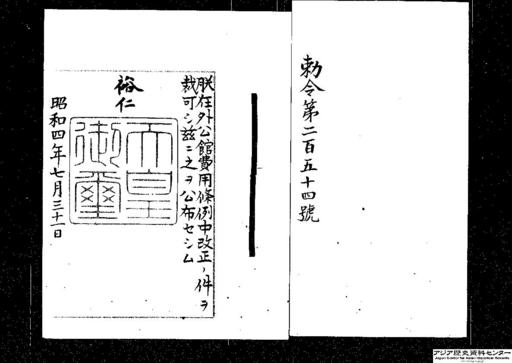 勅令第二百五十四號
朕在外公館費用條例中改正ノ件ヲ
裁可シ玆ニ之ヲ公布セシム
裕仁
天皇御璽
昭和四年七月三十一日
アジア歴史資料センター
Japan Center for Asian Historical Records